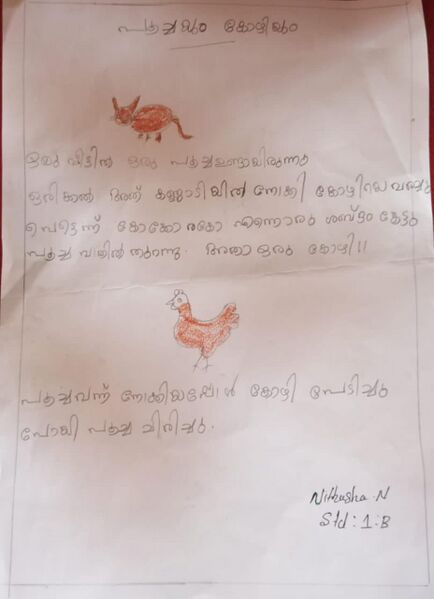 പൂച്ചയും കോഴിയും
ഒരു വീട്ടിൽ ഒരു പൂച്ചഉണ്ടായിരുന്നു
ഒരിക്കൽ അത് കണ്ണാടിയിൽ നോക്കി കോഴിയെ വരച്ചു
പെട്ടെന്ന് കൊക്കോരകോ എന്നൊരു ശബ്ദം കേട്ടു
പൂച്ച വാതിൽ തുറന്നു. അതാ ഒരു കോഴി!!
പൂച്ചവന്ന് നോക്കിയപ്പോൾ കോഴി പേടിച്ചു
പോയി പൂച്ച ചിരിച്ചു.
Nithusha.N
Std : 1.B